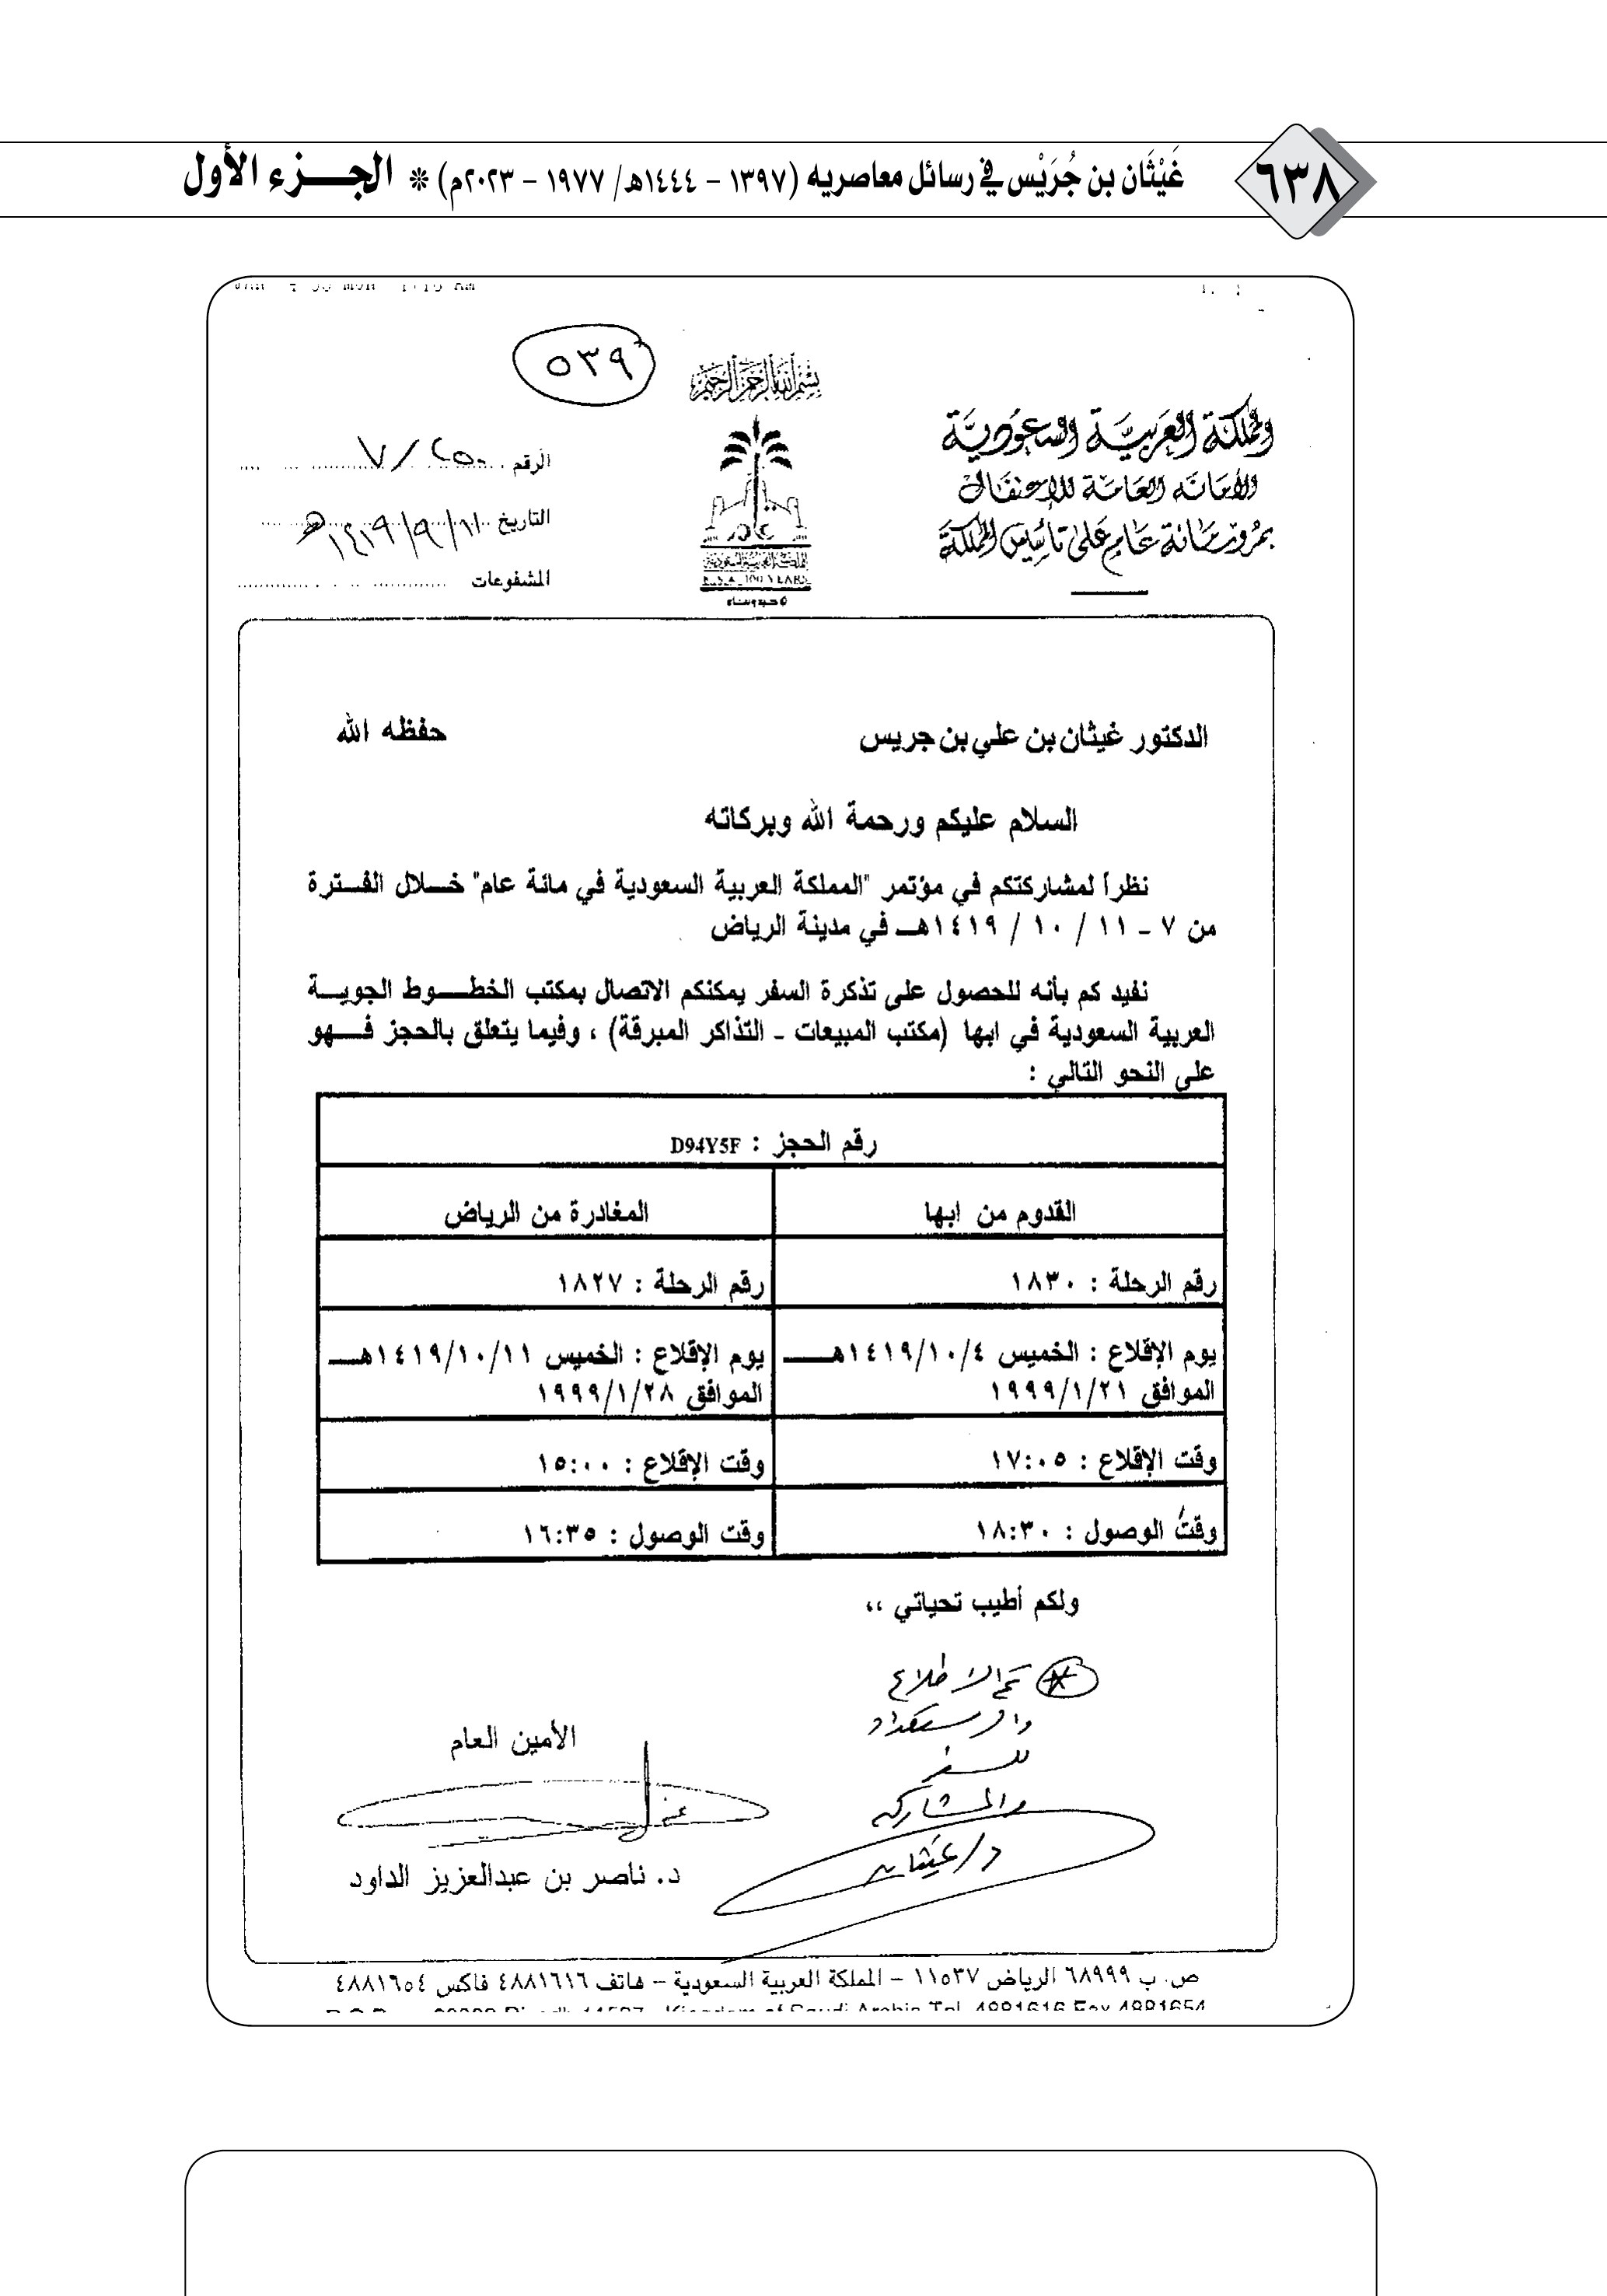 ٦٣٨
غَيْثَان بن جُرَيْس في رسائل معاصريه (١٣٩٧ - ١٤٤٤هـ/ ١٩٧٧ - ٢٠٢٣م) * الجـــزء الأول
٥٣٩
بسم الله الرحمن الرحيم
المملكة العربية السعودية
الأمانة العامة للاحتفال
بمرور مائة عام على تأسيس المملكة
الرقم ٧/٢٥٠
التاريخ ١٤١٩/٩/١١هـ
المشفوعات
المملكة العربية السعودية
K.S.A. 100 YEARS
الدكتور غيثان بن علي بن جريس حفظه الله
السلام عليكم ورحمة الله وبركاته
نظراً لمشاركتكم في مؤتمر "المملكة العربية السعودية في مائة عام" خـــلال الفـــترة
من ٧ - ١١ / ١٠ / ١٤١٩هـ في مدينة الرياض
نفيد كم بأنه للحصول على تذكرة السفر يمكنكم الاتصال بمكتب الخطـــوط الجويـــة
العربية السعودية في ابها (مكتب المبيعات - التذاكر المبرقة) ، وفيما يتعلق بالحجز فـــهو
على النحو التالي :
رقم الحجز : D94Y5F
القدوم من ابها المغادرة من الرياض
رقم الرحلة : ١٨٣٠ رقم الرحلة : ١٨٢٧
يوم الإقلاع : الخميس ١٤١٩/١٠/٤هـــ يوم الإقلاع : الخميس ١٤١٩/١٠/١١هـــ
الموافق ١٩٩٩/١/٢١ الموافق ١٩٩٩/١/٢٨
وقت الإقلاع : ١٧:٠٥ وقت الإقلاع : ١٥:٠٠
وقت الوصول : ١٨:٣٠ وقت الوصول : ١٦:٣٥
ولكم أطيب تحياتي ،،
تم الاطلاع
والاستعداد
للسفر
والمشاركه
د/ غيثان
الأمين العام
د. ناصر بن عبدالعزيز الداود
ص. ب ٦٨٩٩٩ الرياض ١١٥٣٧ - المملكة العربية السعودية - هاتف ٤٨٨١٦١٦ فاكس ٤٨٨١٦٥٤
Riyadh 11537 - Kingdom of Saudi Arabia Tel. 4881616 Fax 4881654